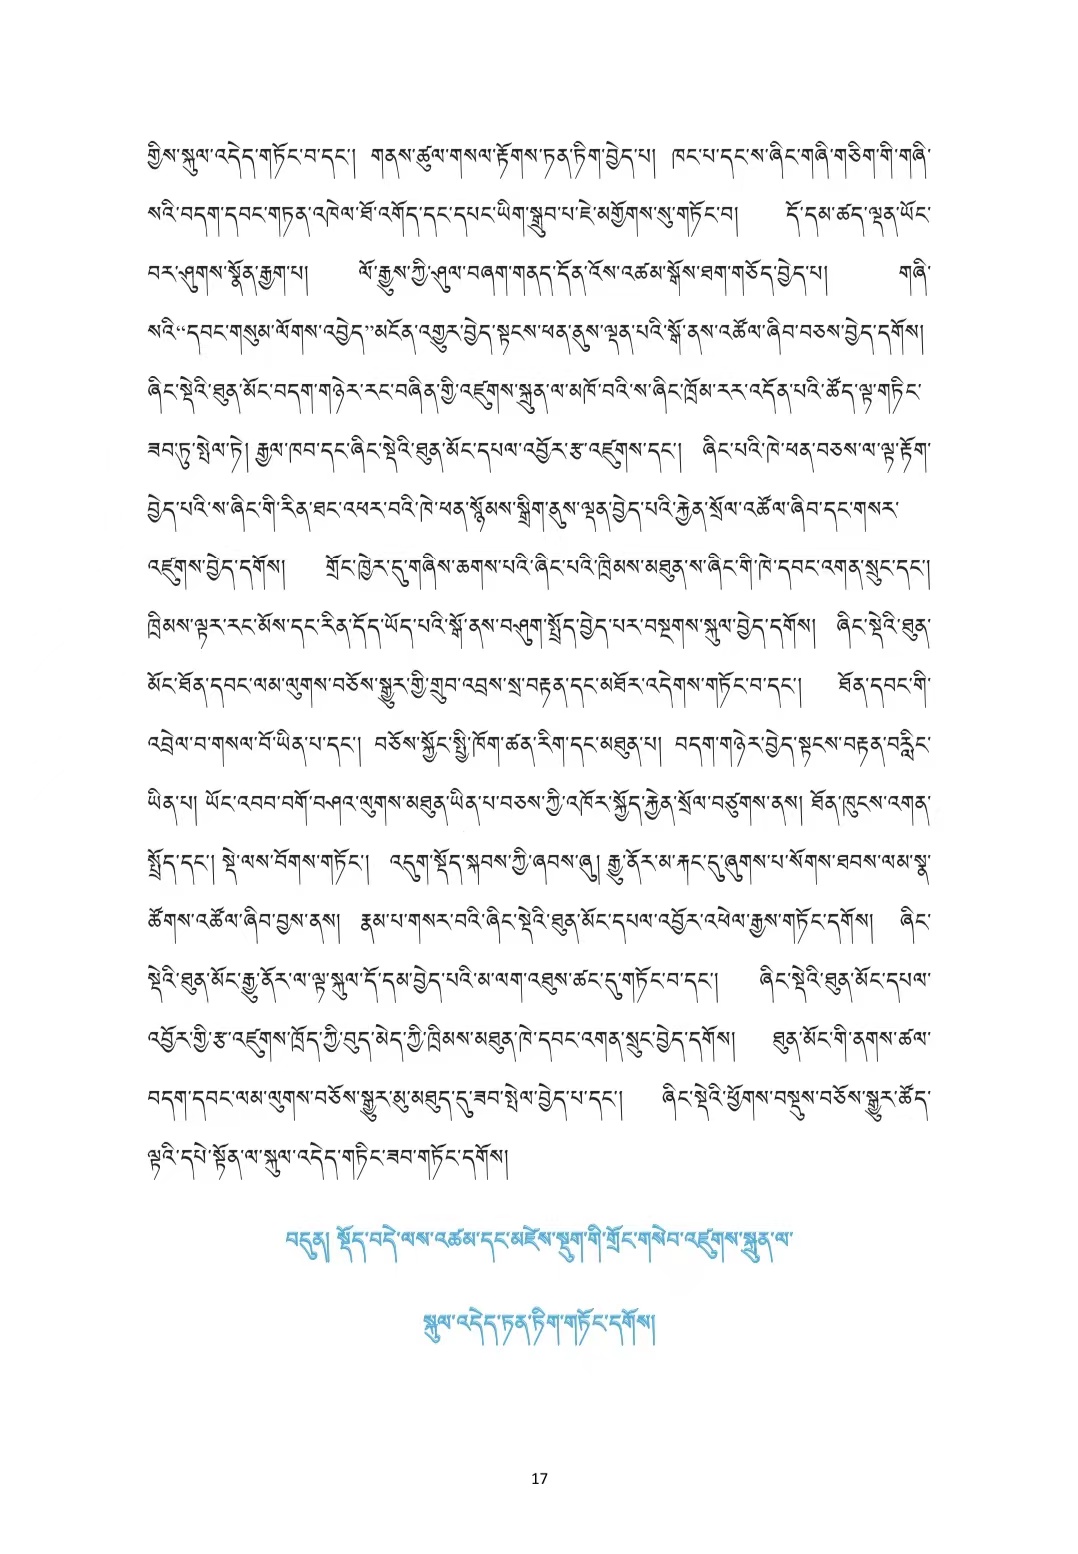 གྱིས་སྐུལ་འདེད་གཏོང་བ་དང་། གནས་ཚུལ་གསལ་རྟོགས་ཏན་ཏིག་བྱེད་པ། ཁང་པ་དང་ས་ཞིང་གཞི་གཅིག་གི་གཞི་
སའི་བདག་དབང་གཏན་འཁེལ་ཐོ་འགོད་དང་དཔང་ཡིག་སྒྲུབ་པ་ཇེ་མགྱོགས་སུ་གཏོང་བ། དོ་དམ་ཚད་ལྡན་ཡོང་
བར་ཤུགས་སྣོན་རྒྱག་པ། ལོ་རྒྱུས་ཀྱི་ཤུལ་བཞག་གནད་དོན་འོས་འཚམ་སྒོས་ཐག་གཅོད་བྱེད་པ། གཞི་
སའི“དབང་གསུམ་ལོགས་འབྱེད”མངོན་འགྱུར་བྱེད་སྟངས་ཕན་ནུས་ལྡན་པའི་སྒོ་ནས་འཚོལ་ཞིབ་བཅས་བྱེད་དགོས།
ཞིང་སྡེའི་ཐུན་མོང་བདག་གཉེར་རང་བཞིན་གྱི་འཛུགས་སྐྲུན་ལ་མཁོ་བའི་ས་ཞིང་ཁྲོམ་རར་འདོན་པའི་ཚོད་ལྟ་གཏིང་
ཟབ་ཏུ་སྤེལ་ཏེ། རྒྱལ་ཁབ་དང་ཞིང་སྡེའི་ཐུན་མོང་དཔལ་འབྱོར་རྩ་འཛུགས་དང་། ཞིང་པའི་ཁེ་ཕན་བཅས་ལ་ལྟ་རྟོག་
བྱེད་པའི་ས་ཞིང་གི་རིན་ཐང་འཕར་བའི་ཁེ་ཕན་སྙོམས་སྒྲིག་ནུས་ལྡན་བྱེད་པའི་རྐྱེན་སྲོལ་འཚོལ་ཞིབ་དང་གསར་
འཛུགས་བྱེད་དགོས། གྲོང་ཁྱེར་དུ་གཞིས་ཆགས་པའི་ཞིང་པའི་ཁྲིམས་མཐུན་ས་ཞིང་གི་ཁེ་དབང་འགན་སྲུང་དང་།
ཁྲིམས་ལྟར་རང་མོས་དང་རིན་དོད་ཡོད་པའི་སྒོ་ནས་བཤུག་སྤྲོད་བྱེད་པར་བསྔགས་སྐུལ་བྱེད་དགོས། ཞིང་སྡེའི་ཐུན་
མོང་ཐོན་དབང་ལམ་ལུགས་བཅོས་སྒྱུར་གྱི་གྲུབ་འབྲས་སྲ་བརྟན་དང་མཐོར་འདེགས་གཏོང་བ་དང་། ཐོན་དབང་གི་
འབྲེལ་བ་གསལ་བོ་ཡིན་པ་དང་། བཅོས་སྐྱོང་སྤྱི་ཁོག་ཚན་རིག་དང་མཐུན་པ། བདག་གཉེར་བྱེད་སྟངས་བརྟན་བརླིང་
ཡིན་པ། ཡོང་འབབ་བགོ་བཤའ་ལུགས་མཐུན་ཡིན་པ་བཅས་ཀྱི་འཁོར་སྐྱོད་རྐྱེན་སྲོལ་བཙུགས་ནས། ཐོན་ཁུངས་འགན་
སྤྲོད་དང་། སྡེ་ལས་བོགས་གཏོང་། འདུག་སྡོད་སྐབས་ཀྱི་ཞབས་ཞུ། རྒྱུ་ནོར་མ་རྐང་དུ་ཞུགས་པ་སོགས་ཐབས་ལམ་སྣ་
ཚོགས་འཚོལ་ཞིབ་བྱས་ནས། རྣམ་པ་གསར་བའི་ཞིང་སྡེའི་ཐུན་མོང་དཔལ་འབྱོར་འཕེལ་རྒྱས་གཏོང་དགོས། ཞིང་
སྡེའི་ཐུན་མོང་རྒྱུ་ནོར་ལ་ལྟ་སྐུལ་དོ་དམ་བྱེད་པའི་མ་ལག་འཐུས་ཚང་དུ་གཏོང་བ་དང་། ཞིང་སྡེའི་ཐུན་མོང་དཔལ་
འབྱོར་གྱི་རྩ་འཛུགས་ཁྲོད་ཀྱི་བུད་མེད་ཀྱི་ཁྲིམས་མཐུན་ཁེ་དབང་འགན་སྲུང་བྱེད་དགོས། ཐུན་མོང་གི་ནགས་ཚལ་
བདག་དབང་ལམ་ལུགས་བཅོས་སྒྱུར་མུ་མཐུད་དུ་ཟབ་སྤེལ་བྱེད་པ་དང་། ཞིང་སྡེའི་ཕྱོགས་བསྡུས་བཅོས་སྒྱུར་ཚོད་
ལྟའི་དཔེ་སྟོན་ལ་སྐུལ་འདེད་གཏིང་ཟབ་གཏོང་དགོས།
བདུན། སྡོད་བདེ་ལས་འཚམ་དང་མཛེས་སྡུག་གི་གྲོང་གསེབ་འཛུགས་སྐྲུན་ལ་
སྐུལ་འདེད་ཏན་ཏིག་གཏོང་དགོས།
17